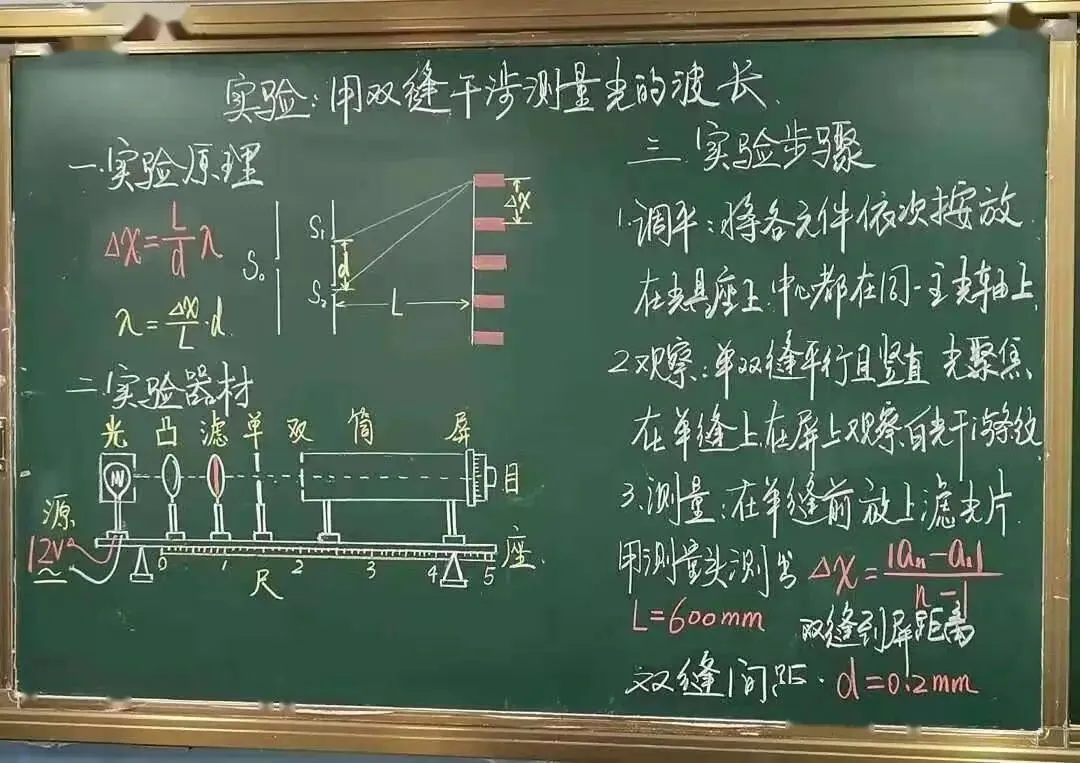 实验:用双缝干涉测量光的波长.
一.实验原理
Δx=L/d λ
λ=Δx/L·d.
S₀
S₁
d
S₂
L
Δx
二.实验器材
光 凸 滤 单 双 筒 屏
目
源
12V
座.
0 1 2 3 4 5
尺
三.实验步骤
1.调平:将各元件依次按放
在光具座上.中心都在同一主光轴上.
2.观察:单双缝平行且竖直 光聚焦
在单缝上在屏上观察白光干涉条纹.
3.测量:在单缝前放上滤光片.
用测量头测出 Δx=|aₙ-a₁|/n-1
L=600mm 双缝到屏距离
双缝间距.d=0.2mm